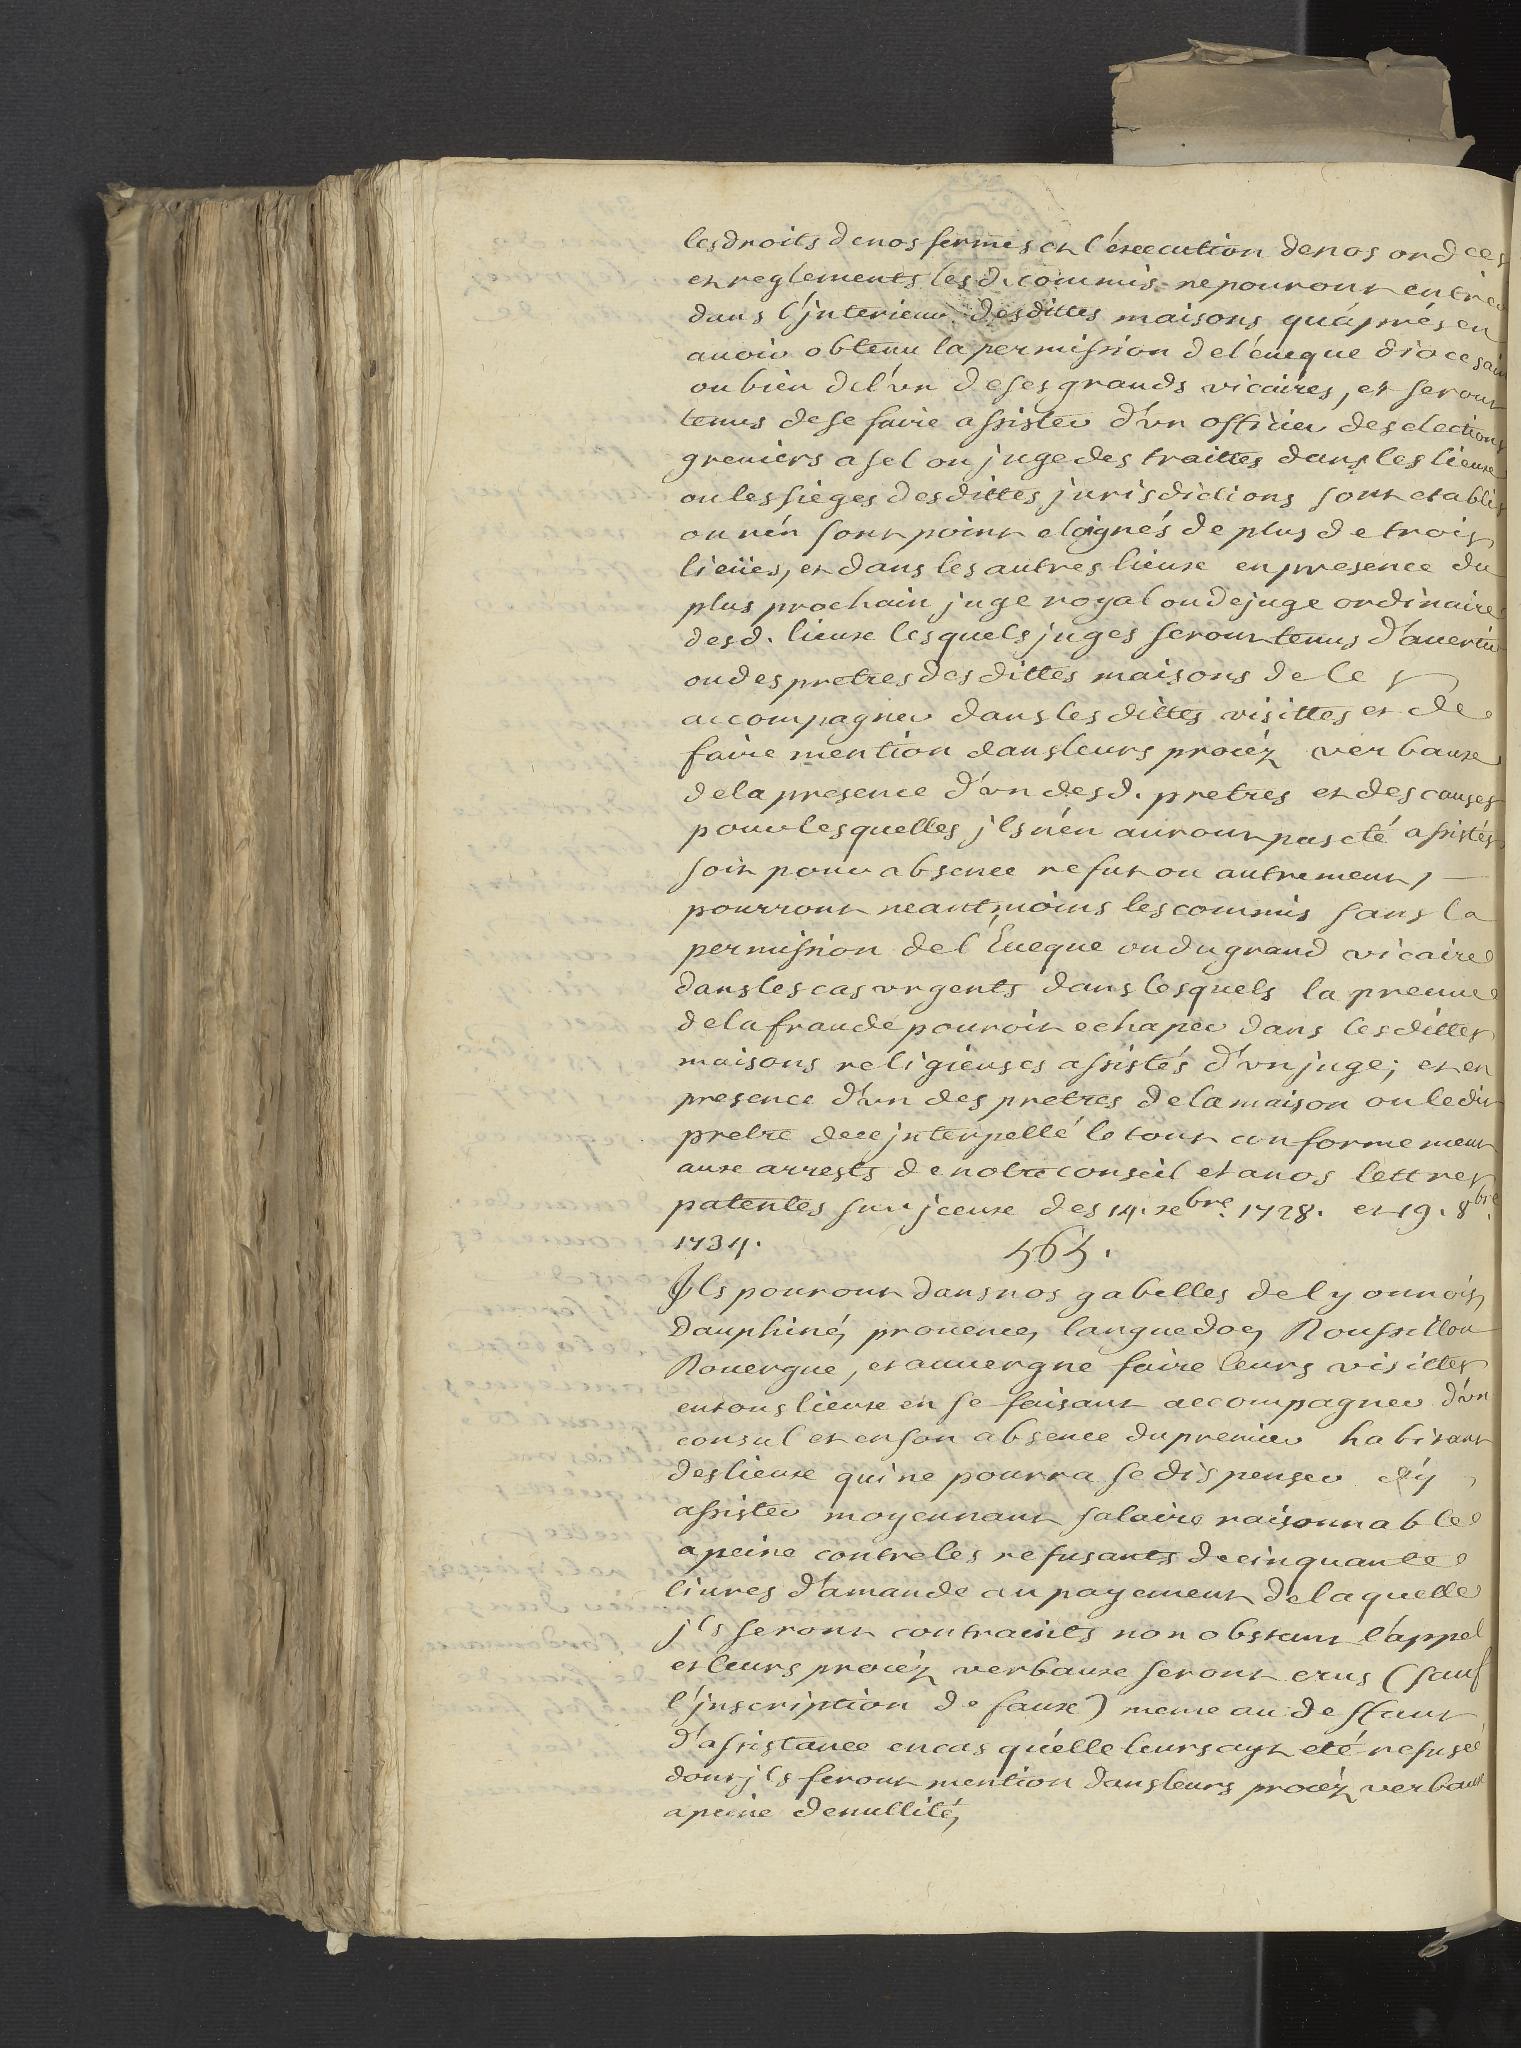 les droits de nos fermes et l'éxecution de nos ord ces
et reglements les d. commis ne pouront entrer
dans l'jnterieur desdittes maisons qu'aprés en
auoir obtenu la permission de l'éueque diocesain
ou bien de l'vn de ses grands vicaires, et seront
tenus de se faire assister d'vn officier des elections
greniers a sel ou juge des traittes dans les lieux
ou les sieges desdittes jurisdictions sont etablis
ou n'én sont point eloignés de plus de trois
lieües, et dans les autres lieux en presence du
plus prochain juge royal ou de juge ordinaire
desd. lieux lesquels juges seront tenus d'auertir
ou des pretres desdittes maisons de le s
accompagner dans les dittes visittes et de
faire mention dans leurs procéz verbaux
de la presence d'vn desd. pretres et des causes
pour lesquelles jls n'én auront pas eté assistés
soit pour absence refus ou autrement,
pourront neantmoins les commis sans la
permission de l'Éueque ou du grand vicaire
dans les cas vrgents dans lesquels la preuue
de la fraude pouroit echaper dans lesdittes
maisons religieuses assistés d'vn juge; et en
presence d'vn des pretres de la maison ou ledit
pretre de ce jnterpellé le tout conformement
aux arrests de notre conseil et a nos lettres
patentes sur jceux des 14. xe bre. 1728. et 19. 8 bre.
1734.
565.
Jls pouront dans nos gabelles de lyonnois,
dauphiné, prouence, languedoc, Roussillon
Rouergue, et auuergne faire leurs visittes
en tous lieux en se faisant accompagner d'vn
consul et en son absence du premier habitant
des lieux qui ne pourra se dispenser d'y
assister moyennant salaire raisonnable
a peine contre les refusants de cinquante
liures d'amande au payement de laquelle
jls seront contraints non obstant l'appel
et leurs procéz verbaux seront crus (sauf
l'jnscription de faux) meme au deffaut
d'assistance en cas qu'élle leurs ayt eté refusé
dont jls feront mention dans leurs procéz verbaux
a peine de nullité,